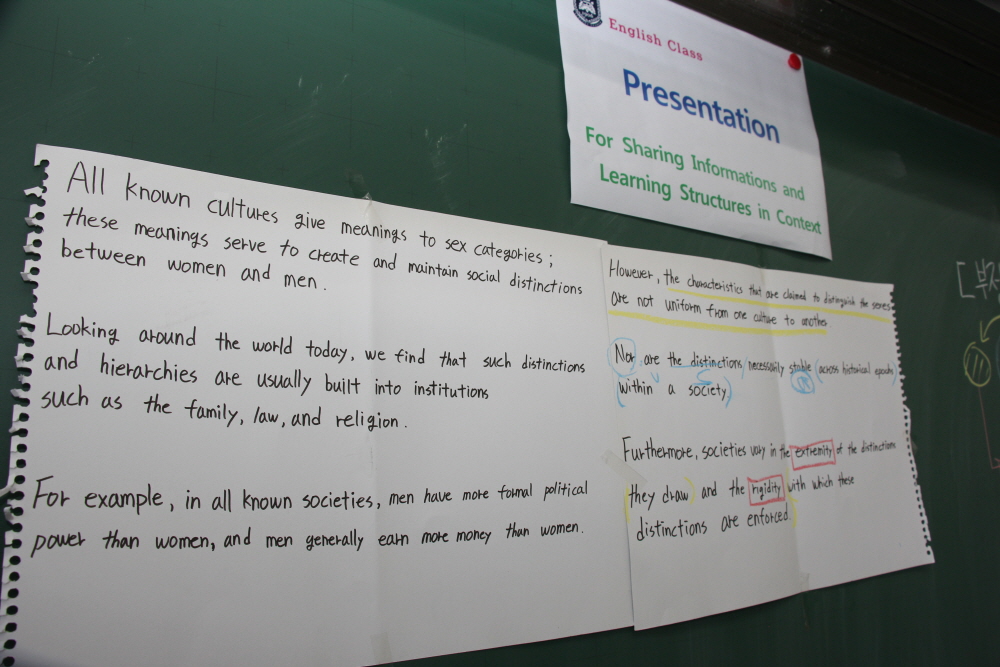 English Class
Presentation
For Sharing Informations and
Learning Structures in Context
All known cultures give meanings to sex categories ;
these meanings serve to create and maintain social distinctions
between women and men.
Looking around the world today, we find that such distinctions
and hierarchies are usually built into institutions
such as the family, law, and religion.
For example, in all known societies, men have more formal political
power than women, and men generally earn more money than women.
However, the characteristics that are claimed to distinguish the sexes
are not uniform from one culture to another
Nor are the distinctions necessarily stable (across historical epochs)
(within a society)
Furthermore, societies vary in the extremity of the distinctions
they draw) and the rigidity with which these
distinctions are enforced.
[부정